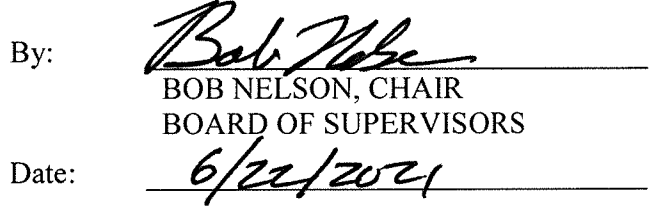 By: Bob Nelson
BOB NELSON, CHAIR
BOARD OF SUPERVISORS
Date: 6/22/2021